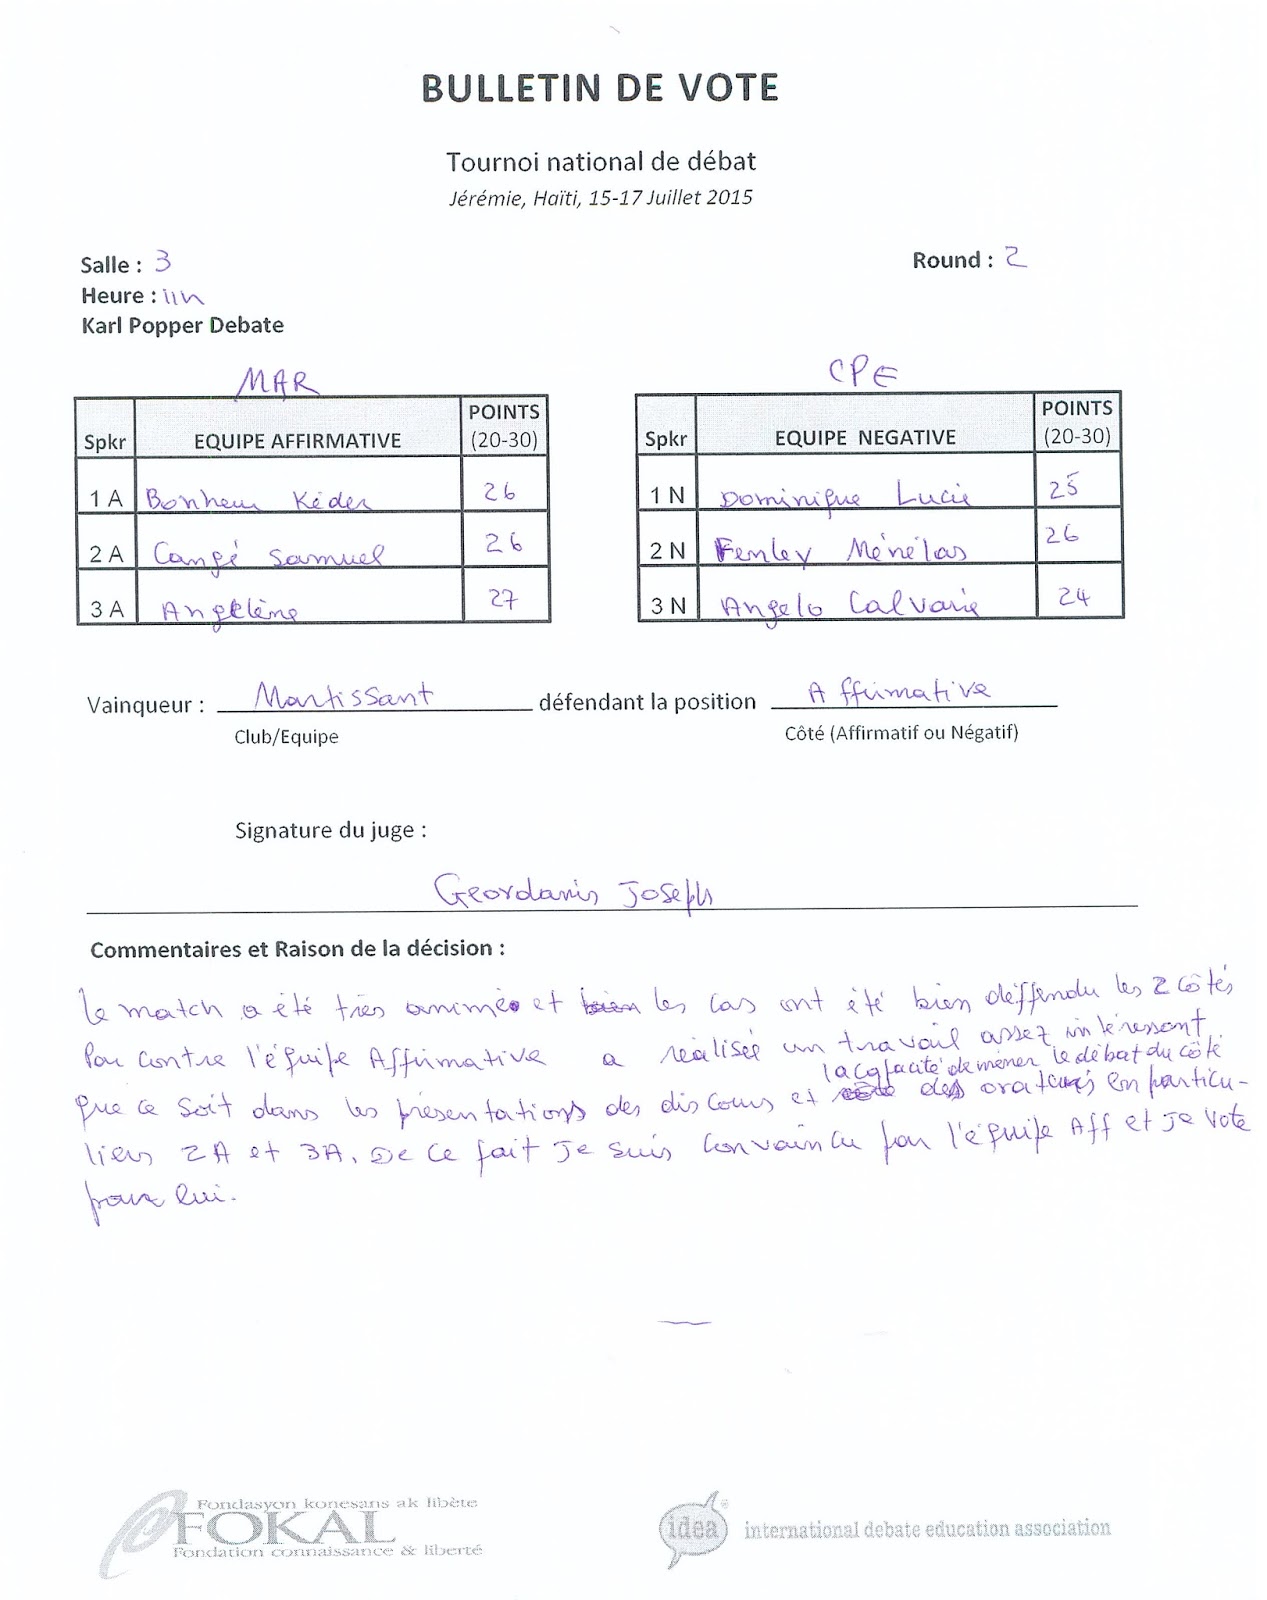 BULLETIN DE VOTE
Tournoi national de débat
Jérémie, Haïti, 15-17 Juillet 2015
Salle : 3
Round : 2
Heure : 11h
Karl Popper Debate
MAR
Spkr EQUIPE AFFIRMATIVE POINTS (20-30)
1 A Bonheur Kéder 26
2 A Cangé Samuel 26
3 A Angélène 27
CPE
Spkr EQUIPE NEGATIVE POINTS (20-30)
1 N Dominique Lucie 25
2 N Fenley Ménélas 26
3 N Angelo Calvarie 24
Vainqueur : Martissant défendant la position Affirmative
Club/Equipe Côté (Affirmatif ou Négatif)
Signature du juge :
Geordanis Joseph
Commentaires et Raison de la décision :
Le match a été très animé et les cas ont été bien déffendu les 2 côtés
Par contre l'équipe Affirmative a réalisée un travail assez intéressant
que ce soit dans les présentations des discours et la capacité de mener le débat du côté des orateurs en particu-
liers 2A et 3A. De ce fait je suis convaincu par l'équipe Aff et je vote
pour lui.
Fondasyon konesans ak libète
FOKAL
Fondation connaissance & liberté
idea international debate education association